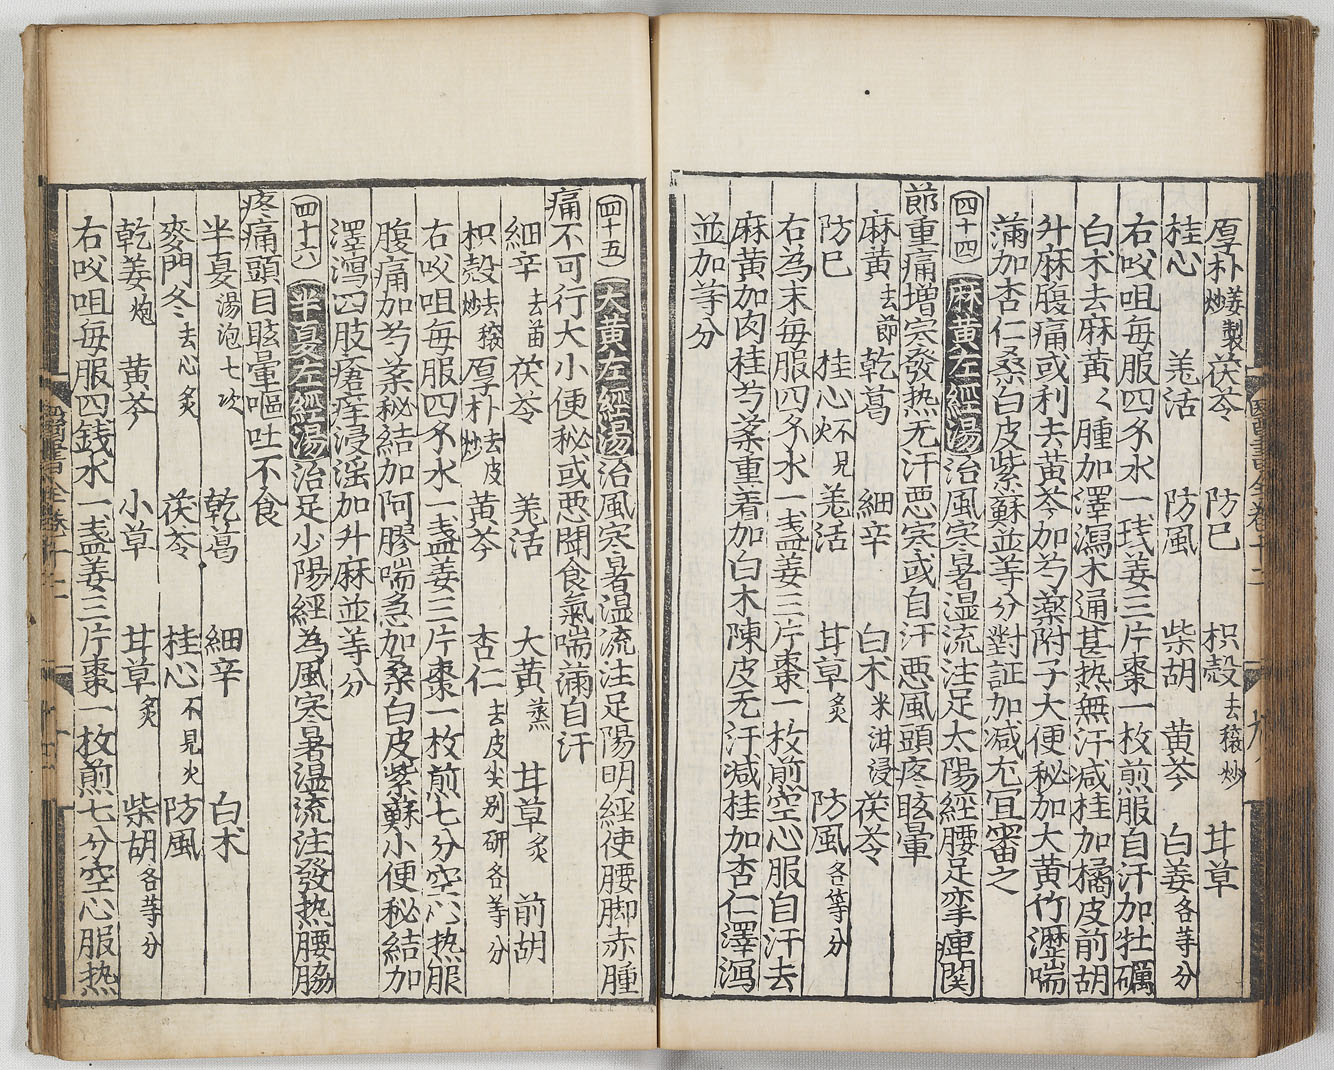 厚朴姜製炒 茯苓 防巳 枳殼去穣炒 甘草
桂心 羌活 防風 柴胡 黄芩 白姜各等分
右㕮咀每服四㕝水一琖姜三片棗一枚煎服自汗加牡礪
白术去麻黃〻腫加澤瀉木通甚热無汗减桂加橘皮前胡
升麻腹痛或利去黄芩加芍薬附子大便秘加大黄竹瀝喘
滿加杏仁桑白皮紫蘇並等分對証加减尤宜審之
四十四 麻黄左經湯 治風寒暑湿流注足太陽經腰足挛痺関
節重痛增寒發热无汗恶寒或自汗恶風頭疼眩暈
麻黄去節 乾葛 細辛 白术米泔浸 茯苓
防巳 桂心不見火 羌活 甘草炙 防風各等分
右為末每服四㕝水一盞姜三片棗一枚煎空心服自汗去
麻黄加肉桂芍薬重着加白术陳皮无汗减桂加杏仁澤瀉
並加等分
四十五 大黄左經湯 治風寒暑湿流注足陽明經使腰脚赤腫
痛不可行大小便秘或恶聞食氣喘滿自汗
細辛去苗 茯苓 羌活 大黄蒸 甘草炙 前胡
枳殼去穣炒 厚朴去皮炒 黄芩 杏仁去皮尖别研各等分
右㕮咀每服四㕝水一盞姜三片棗一枚煎七分空心热服
腹痛加芍薬秘結加阿膠喘急加桑白皮紫蘇小便秘結加
澤瀉四肢瘡痒浸滛加升麻並等分
四十六 半夏左經湯 治足少陽經為風寒暑湿流注發热腰脇
疼痛頭目眩暈嘔吐不食
半夏湯泡七次 乾葛 細辛 白术
麥門冬去心炙 茯苓 桂心不見火 防風
乾姜炮 黄芩 小草 甘草炙 柴胡各等分
右㕮咀每服四錢水一盞姜三片棗一枚煎七分空心服热